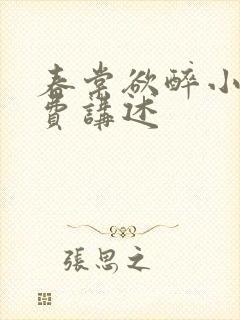 春棠欲醉小
費講述
張思之